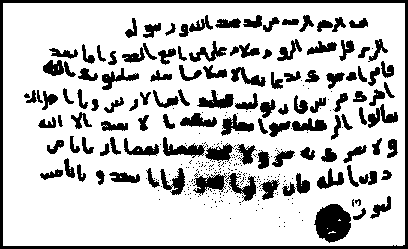 بسم الله الرحمن الرحيم من محمد عبد الله ورسوله
الى هرقل عظيم الروم سلام على من اتبع الهدى اما بعد
فانى ادعوك بدعاية الاسلام اسلم تسلم يوتك الله
اجرك مرتين فان توليت فعليك اثم الاريسين ويا اهل الك
تعالوا الى كلمة سوا بيننا وبينكم ان لا نعبد الا الله
ولا نشرك به شيا ولا يتخذ بعضنا بعضا اربابا من
دون الله فان تولوا فقولوا اشهدوا بانا مس
لمون